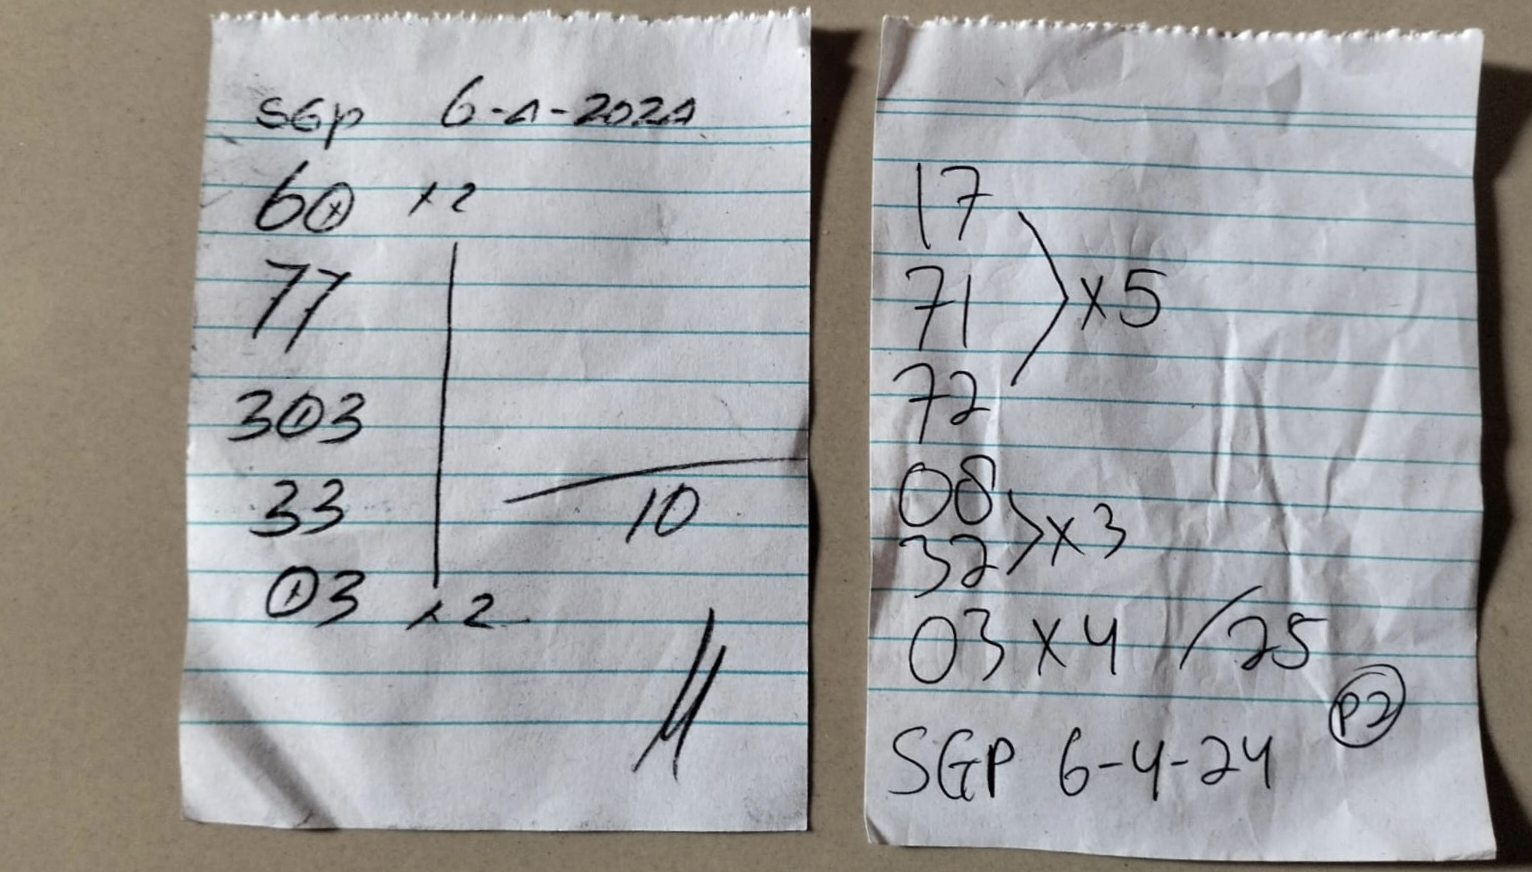 SGP 6-4-2024
60 x2
77
303
33
10
03 x2
17
71 x5
72
08
32 x3
03 x4 /25
P2
SGP 6-4-24